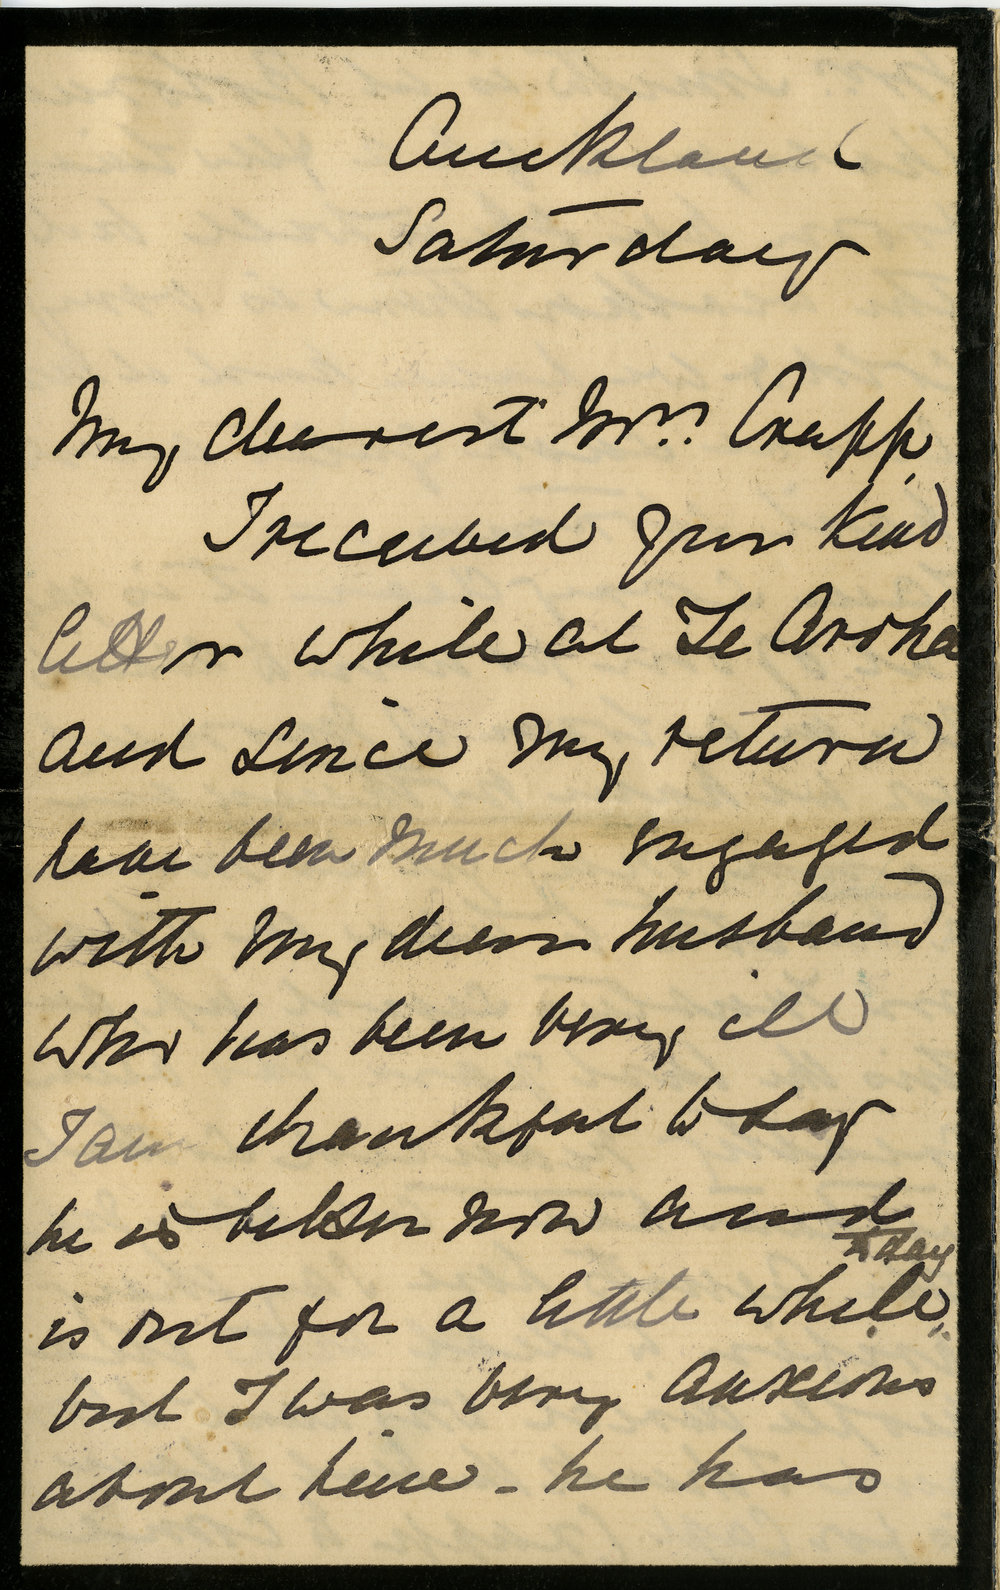 Auckland
Saturday
My dearest Mrs. Crapp
I received your kind
letter while at Te Aroha
and since my return
have been much engaged
with my dear husband
who has been very ill
I am thankful to say
he is better now and
today
is out for a little while,
but I was very anxious
about him - he has